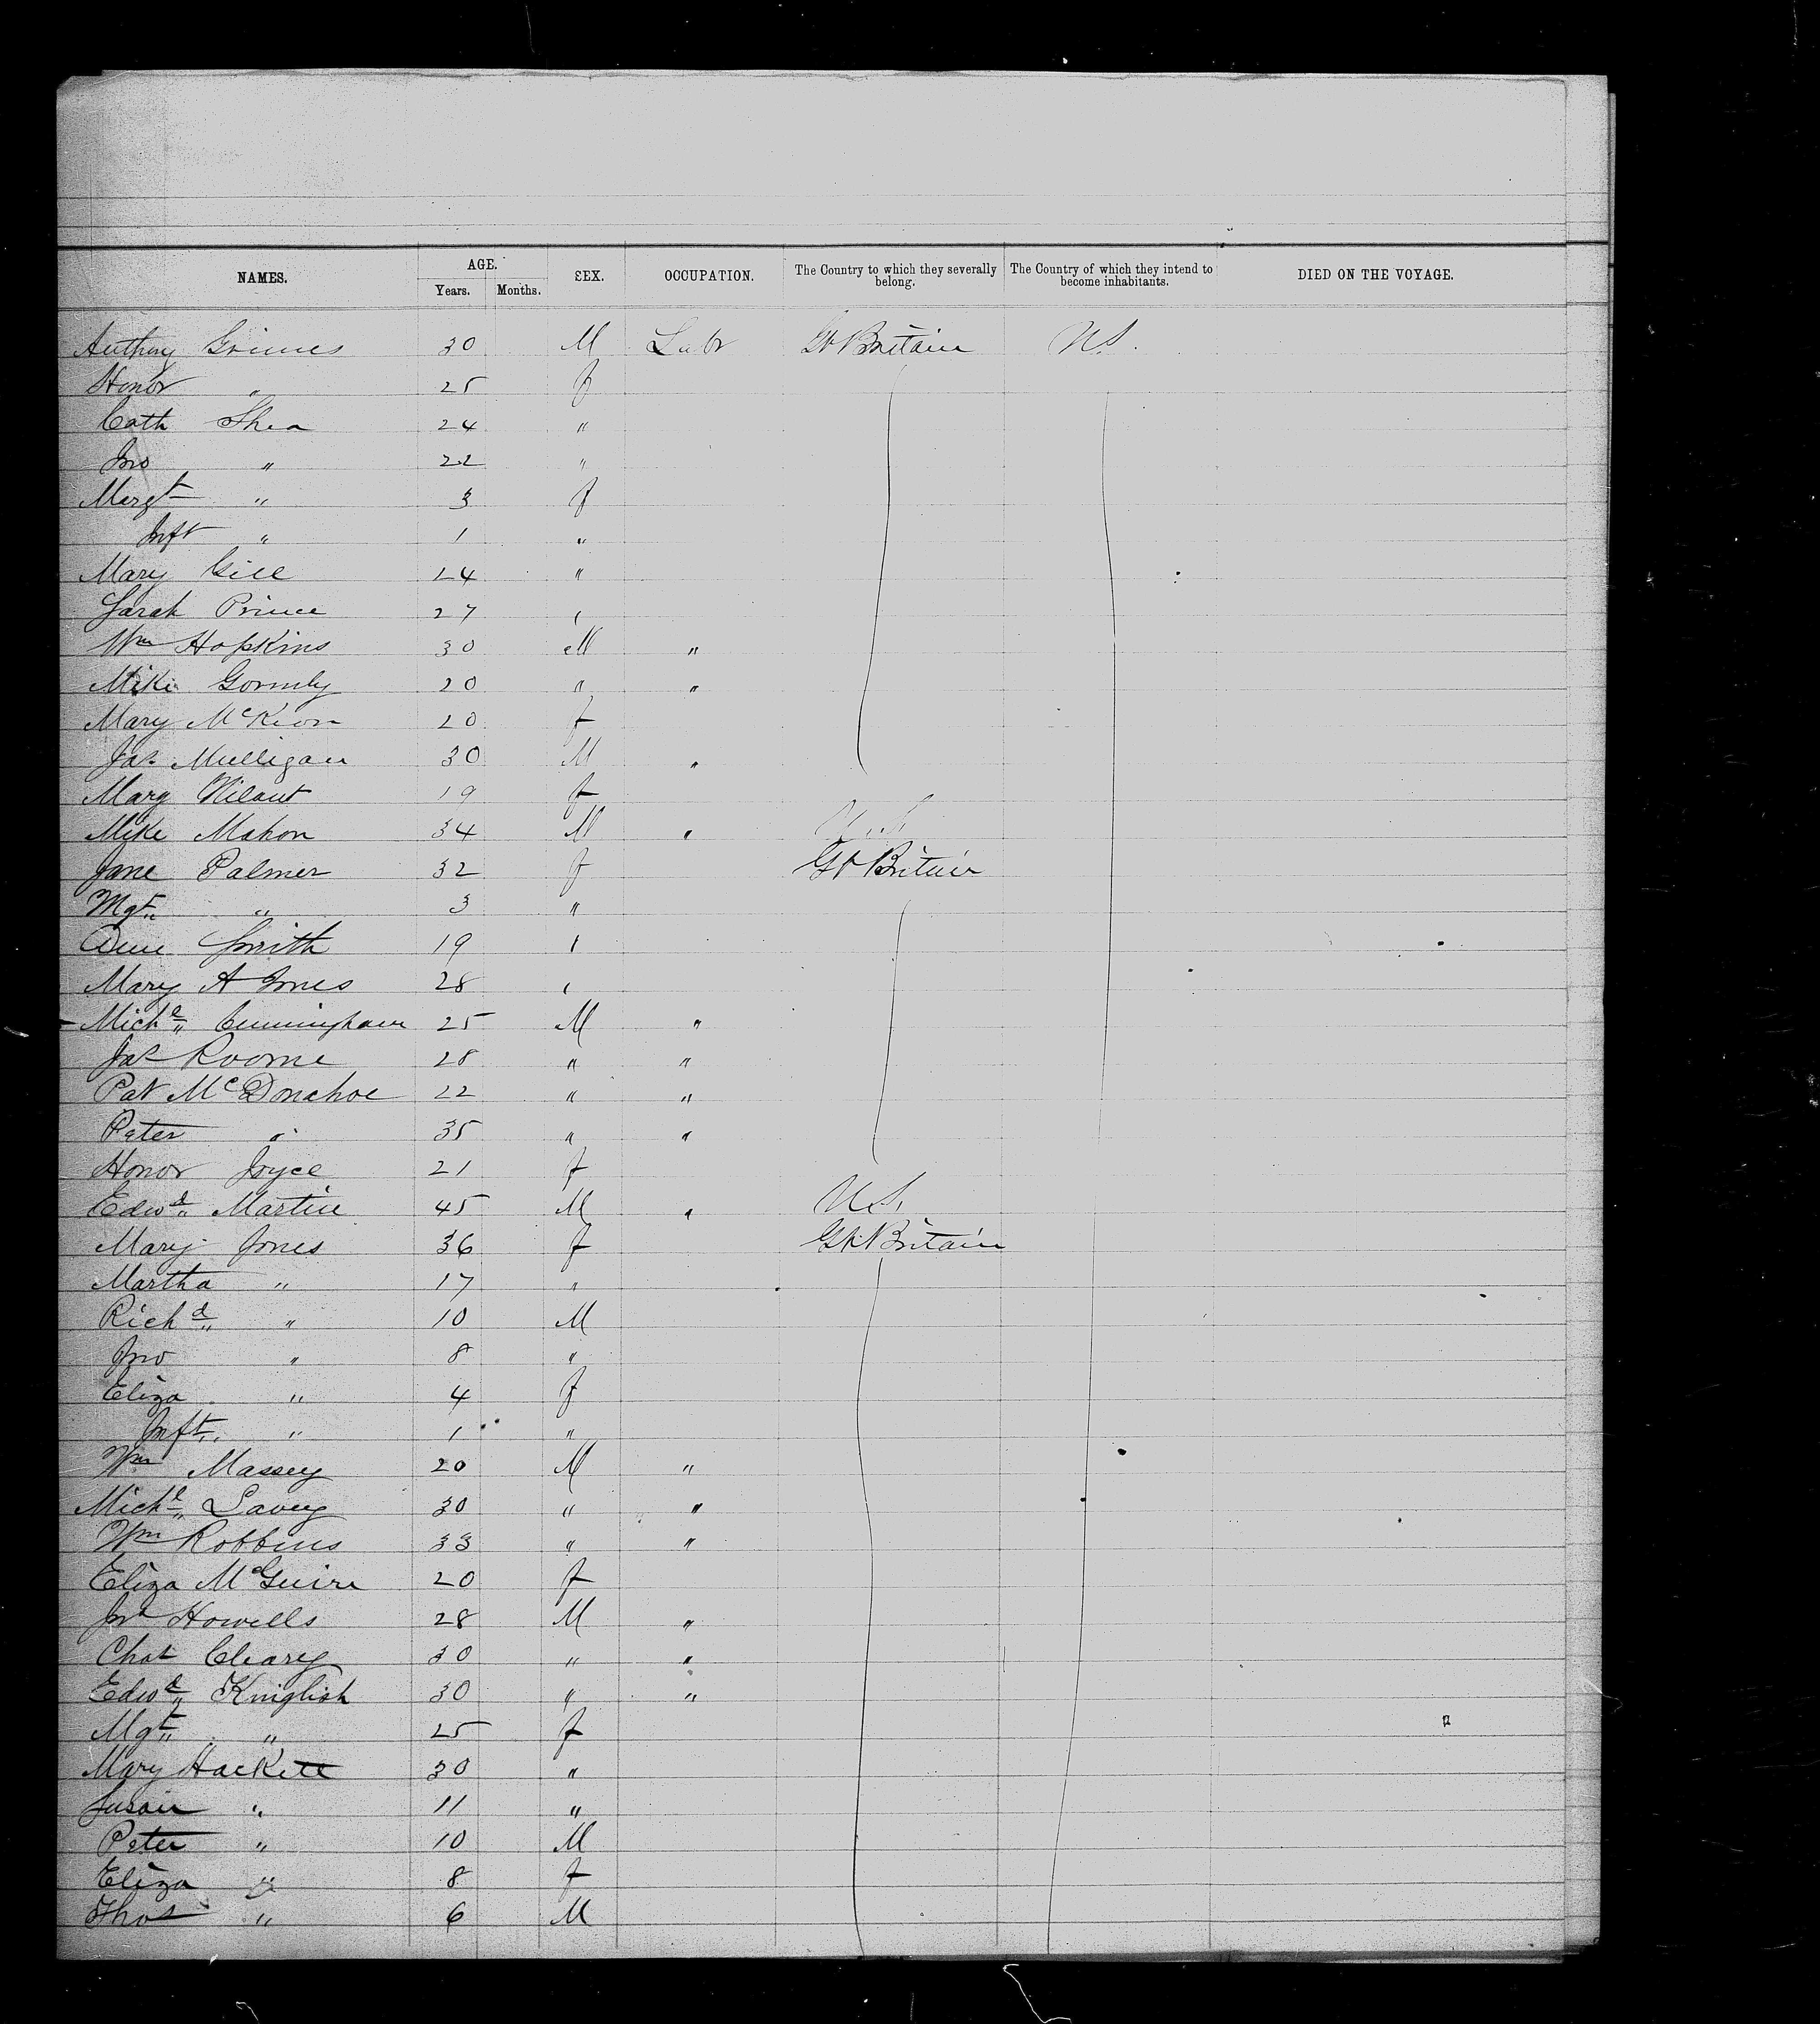 NAMES. AGE. SEX. OCCUPATION. The Country to which they severally belong. The Country of which they intend to become inhabitants. DIED ON THE VOYAGE.
Years. Months.
Anthony Grimes 30 M Labr Gt Britain U.S.
Honor " 25 f
Cath Shea 24 "
Jno " 22 "
Margt " 3 f
Inft " 1 "
Mary Gill 24 "
Sarah Prince 27 "
Wm Hopkins 30 M "
Mike Gormly 20 " "
Mary McKeon 20 f
Jas Mulligan 30 M "
Mary 19 f
Mike Mahon 34 M " U.S.
Jane Palmer 32 f Gt Britain
Mgt " 3 "
Smith 19 "
Mary A Jones 28 "
Michl Cunningham 25 M "
Jas Roome 28 " "
Pat McDonahoe 22 " "
Peter " 35 " "
Honor Joyce 21 f
Edwd Martin 45 M " U.S.
Mary Jones 36 f Gt Britain
Martha " 17 "
Richd " 10 M
Jno " 8 "
Eliza " 4 f
Inft " 1 "
Wm Massey 20 M "
Michl Lavey 30 " "
Wm Robbins 33 " "
Eliza McGuire 20 f
Jno Howells 28 M "
Chas Cleary 30 " "
Edwd Knighish 30 " "
Mgt " 25 f
Mary Hackett 30 "
Susan " 11 "
Peter " 10 M
Eliza " 8 f
Thos " 6 M